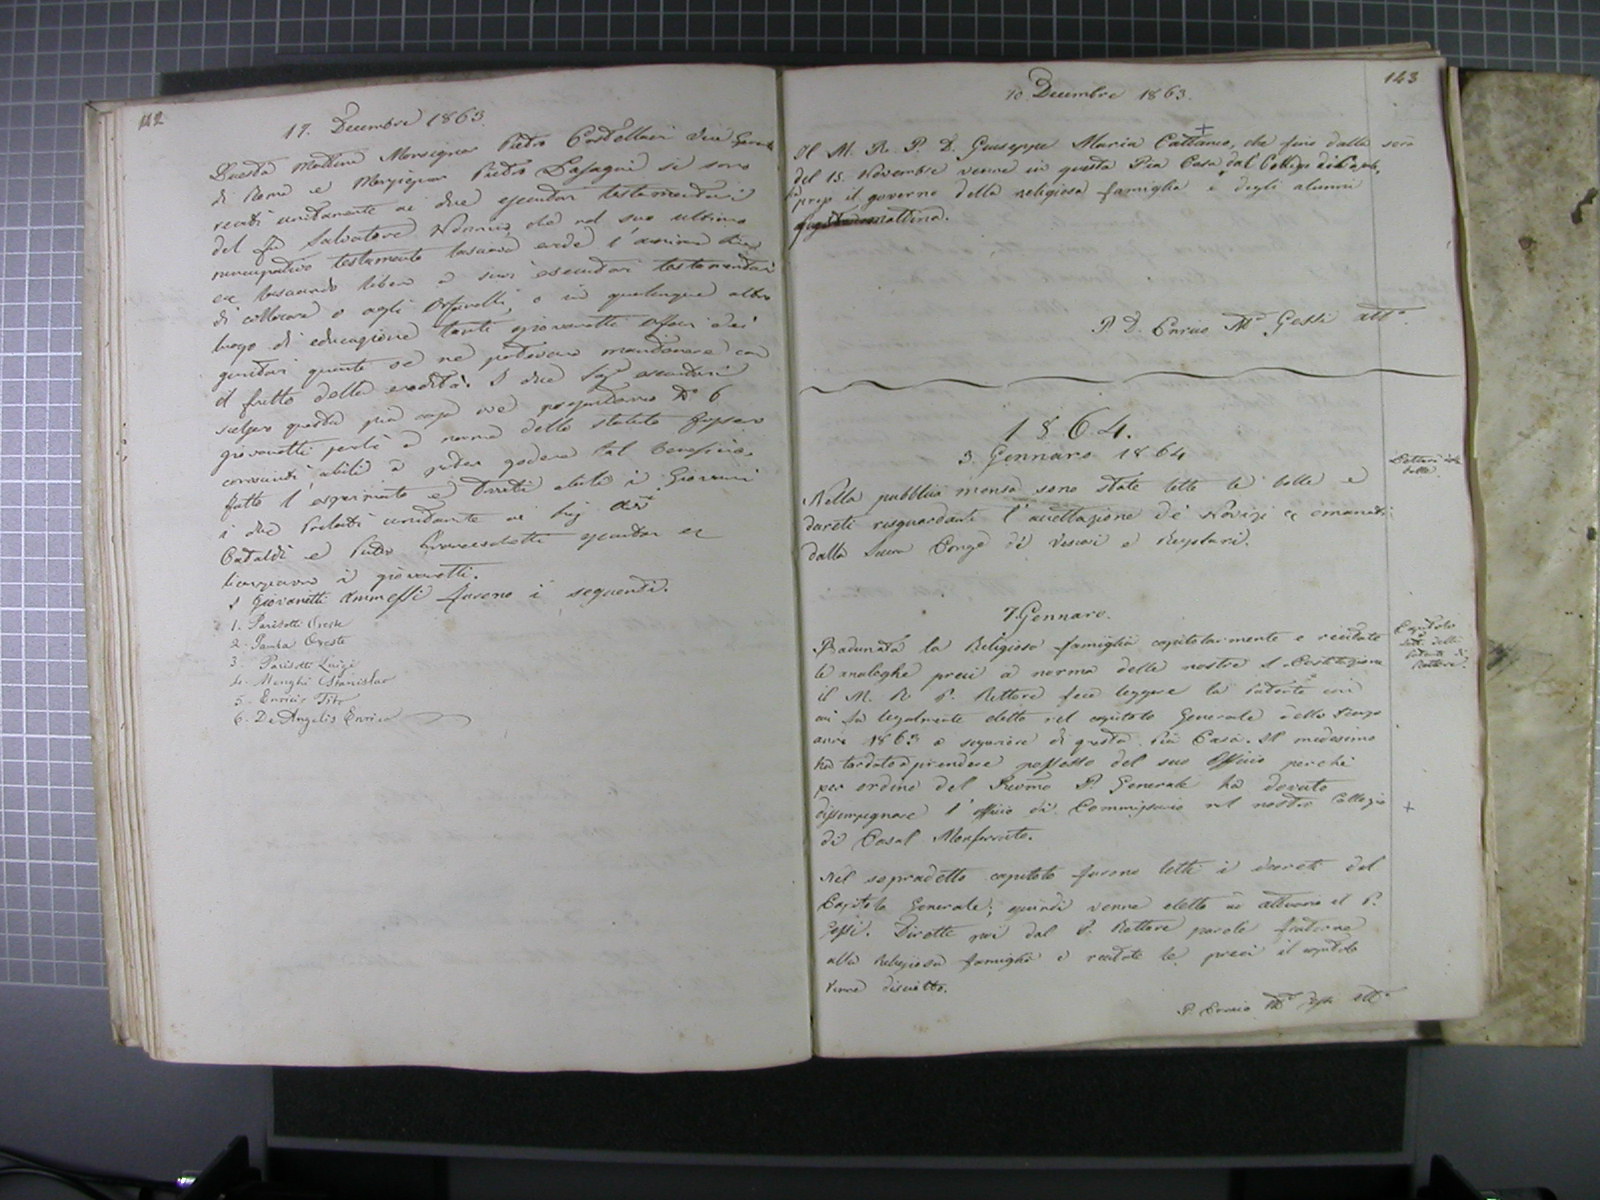 142
17. Decembre 1863
Questa mattina Monsignor Pietro Castellaci Vice Gerente
di Roma e Monsignor Pietro Lasagni si sono
recati unitamente ai due esecutori testamentari
del fu Salvatore che nel suo ultimo
nuncupativo testamento lasciava erede l'anima
lasciando libero a suoi esecutori testamentari
di collocare o agli Orfanelli, o in qualunque altro
luogo di educazione tanti giovanetti orfani dei
genitori quanti se ne potevano mantenere con
il frutto della eredità. I due esecutori
scelsero questa pia casa ove N° 6
giovanetti perché a norma dello statuto fossero
conosciuti abili a poter godere tal beneficio.
fatto l'esperimento e eletti i Giovani
i due Prelati unitamente ai Sig.
Cataldi e Pietro esecutori
licenziarono i giovanetti.
I Giovanetti Ammessi furono i seguenti.
1. Parisotti Oreste
2. Oreste
3. Parisotti Luigi
4. Menghi Stanislao
5. Enrico Tito
6. De Angelis Enrico
143
10 Decembre 1863.
Il M. R. P. D. Giuseppe Maria Cattaneo, che fino dalla sera
del 15. Novembre venne in questa Pia Casa dal Collegio di
prese il governo della religiosa famiglia e degli alunni
mattina.
P. D. Enrico M.a Gessi att.o
1864.
3. Gennaro 1864
Lettura delle
bolle
Nella pubblica mensa sono state lette le bolle e
decreti risguardanti l'accettazione de' Novizi emanati
dalla Sacra Cong.e di Vescovi e Regolari.
7. Gennaro.
Capitolo
della
Patente di
Rettore.
Radunata la Religiosa famiglia capitolarmente e recitate
le analoghe preci a norma delle nostre S. Costituzioni
il M. R. P. Rettore fece leggere la Patente con
cui fu legalmente eletto nel capitolo Generale dello scorso
anno 1863 a superiore di questa Pia Casa. Il medesimo
ha tardato a prendere possesso del suo Officio perché
per ordine del Revmo P. Generale ha dovuto
dissimpegnare l'officio di Commissario nel nostro Collegio
di Casal Monferrato.
Nel sopradetto capitolo furono letti i decreti del
Capitolo Generale; quindi venne eletto ad attuario il P.
Gessi. Dirette poi dal P. Rettore parole fraterne
alla Religiosa famiglia e recitate le preci il capitolo
venne disciolto.
P. Enrico M.a Gessi att.o